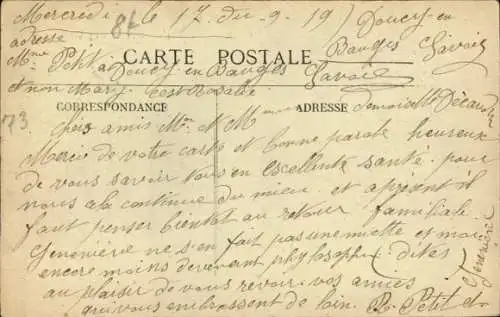 Mercredi le 17 du 9 19) Doucy en
adresse 86 Bauges Savoie
Mme Petit a Doucy en Bauges Savoie
CARTE POSTALE
et non Mary c'est Rosalie
CORRESPONDANCE ADRESSE
demoiselle
73 Chers amis Mr. et Mme
Merci de votre carte et bonne parole heureux
de vous savoir tous en excellente santé. pour
nous a la continue du mieu. et apresent il
faut penser bientot au retour familiale.
Geneviève ne s'en fait pas une miette et moi
encore moins devenant phylosophe (dites)
au plaisir de vous revoir. vos amies
qui vous embrassent de loin. R. Petit et
Geneviève